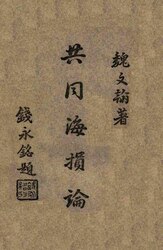 魏文翰著
共同海損論
錢永銘題